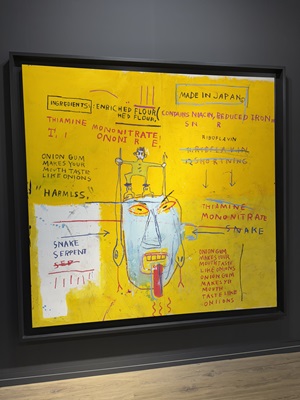 INGREDIENTS: ENRICHED FLOUR
MADE IN JAPAN©
THIAMINE
MONONITRATE
CONTAINS NIACIN, REDUCED IRON
S N R
RIBOFLAVIN
SHORTENING
ONION GUM
MAKES YOUR
MOUTH TASTE
LIKE ONIONS.
"HARMLESS."
THIAMINE
MONONITRATE
SNAKE
SNAKE
SERPENT
ONION GUM
MAKES YOUR
MOUTH TASTE
LIKE ONIONS
ONION GUM
MAKES YO
MOUTH
TASTE LIKE
ONIONS